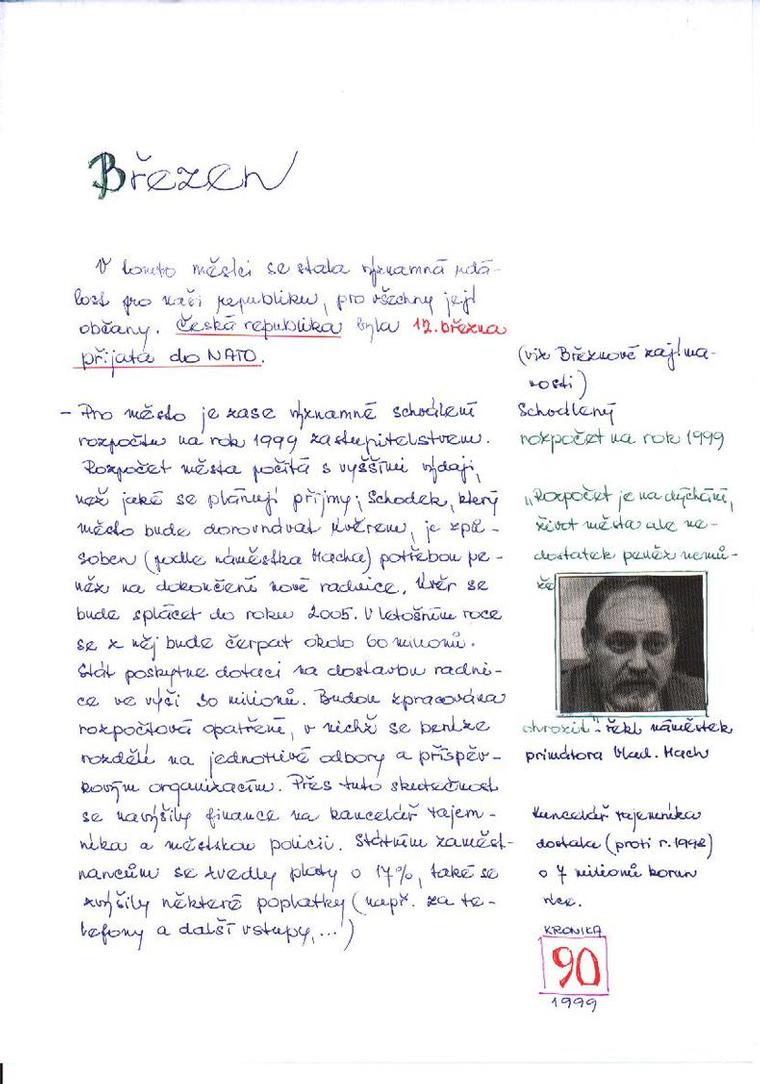 Březen
V tomto měsíci se stala významná udá-
lost pro naši republiku, pro všechny její
občany. Česká republika byla 12. března
přijata do NATO.
(viz Březnové zajíma-
vosti)
– Pro město je zase významné schválení
rozpočtu na rok 1999 zastupitelstvem.
Rozpočet města počítá s vyššími výdaji,
než jaké se plánují příjmy; Schodek, který
město bude dorovnávat úvěrem, je způ-
soben (podle náměstka Macha) potřebou pe-
něz na dokončení nové radnice. Úvěr se
bude splácet do roku 2005. V letošním roce
se z něj bude čerpat okolo 60 milionů.
Stát poskytne dotaci na dostavbu radni-
ce ve výši 30 milionů. Budou zpracována
rozpočtová opatření, v nichž se peníze
rozdělí na jednotlivé odbory a příspěv-
kovým organizacím. Přes tuto skutečnost
se navýšily finance na kancelář tajem-
níka a městskou policii. Státním zaměst-
nancům se zvedly platy o 17%, také se
zvýšily některé poplatky (např. za te-
lefony a další vstupy,...)
Schválený
rozpočet na rok 1999
„Rozpočet je na dýchání,
život města ale ne-
dostatek peněz nemů-
že
ohrozit": řekl náměstek
primátora Vlad. Mach
Kancelář tajemníka
dostala (proti r. 1998)
o 7 milionů korun
více.
KRONIKA
90
1999